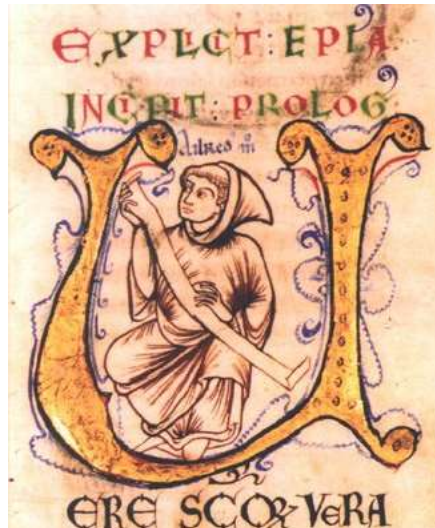 EXPLICIT : EPLA
INCIPIT : PROLOG
U
ERE SCOꝝ VERA